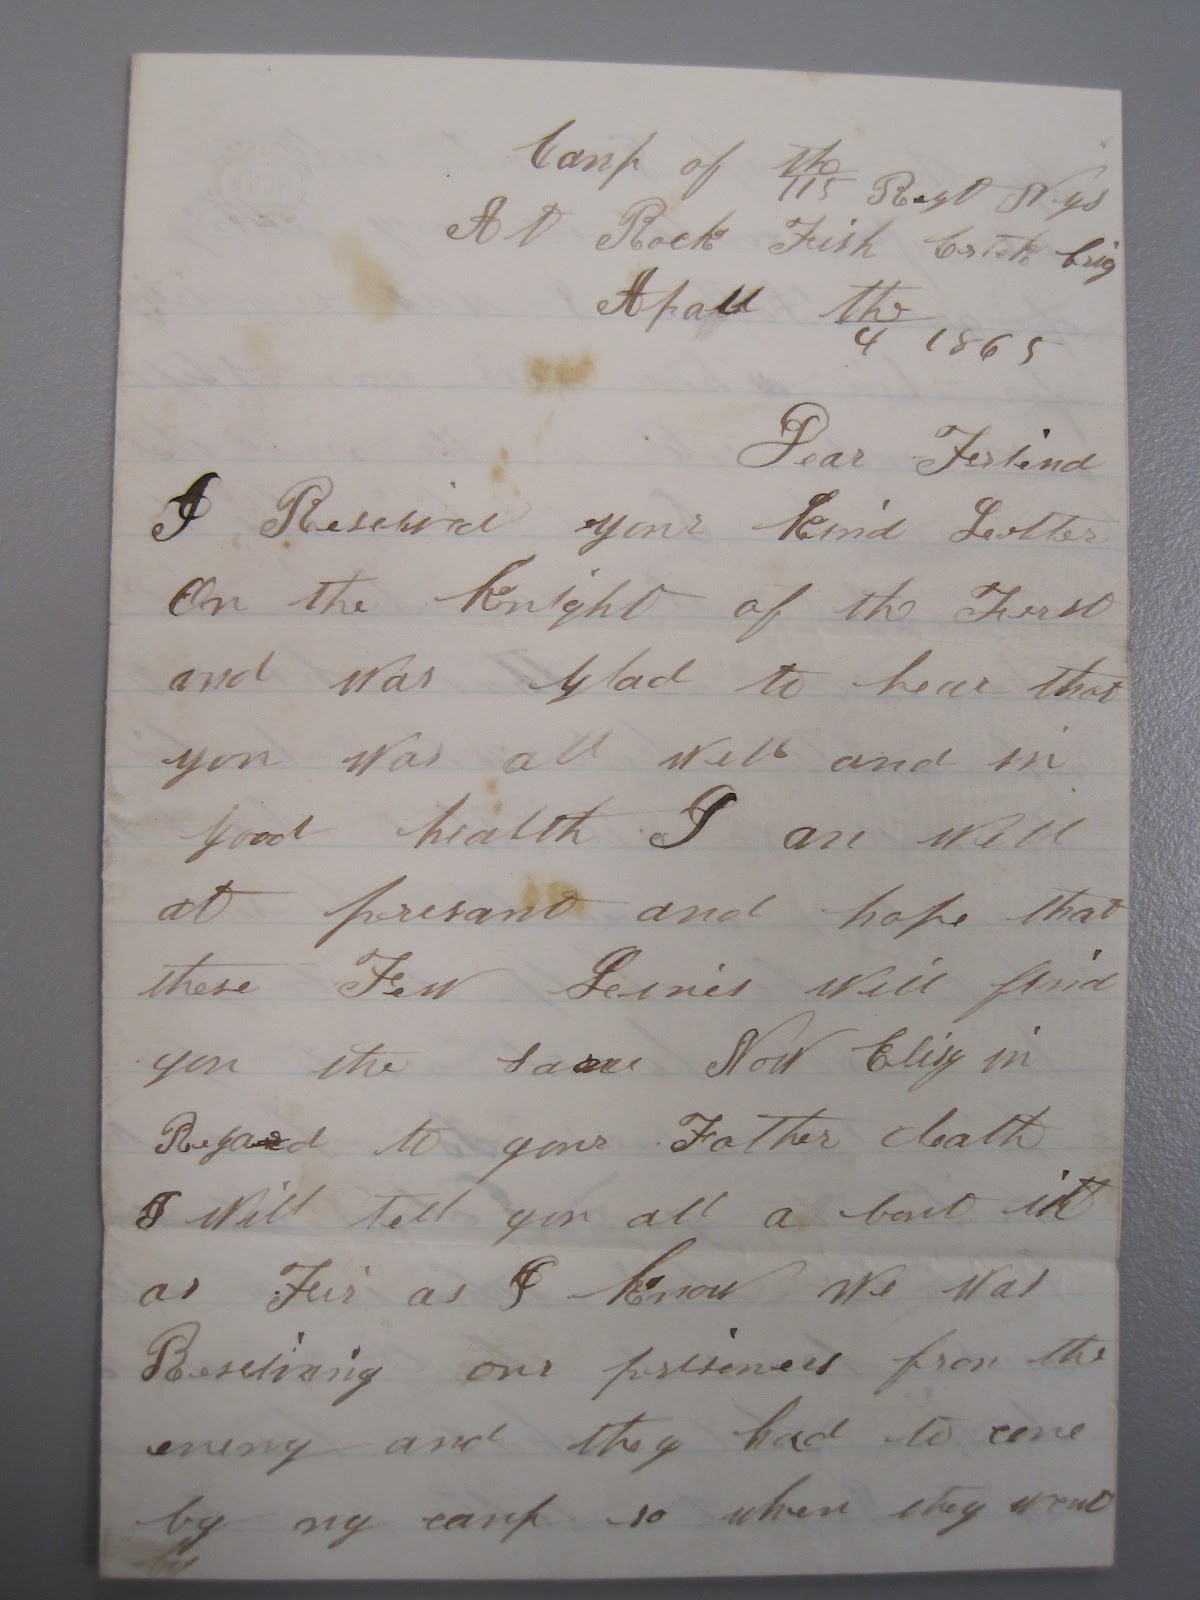 Camp of the 115 Regt N Y S
At Rock Fish Crick brig
Apall the 4 1865
Dear Feriend
I Reseived your kind Letter
On the Knight of the Ferst
and was glad to hear that
you was all well and in
good health I am well
at presant and hope that
these Few Leines will find
you the same Now Elisy in
Regard to your Father death
I will tell you all a bout it
as Feir as I know We was
Reseiving our prisiners from the
enemy and they had to come
by my camp so when they went
by